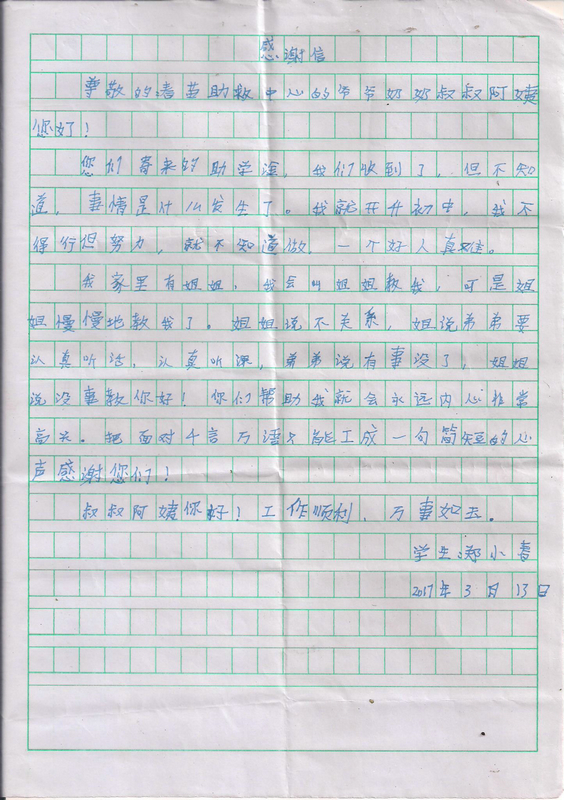 感谢信
尊敬的春苗助教中心的爷爷奶奶叔叔阿姨
您好!
您们寄来的助学金,我们收到了,但不知
道,事情是什么发生了。我就开升初中,我不
得行但努力,就不知道做,一个好人真难。
我家里有姐姐,我会叫姐姐教我,可是姐
姐慢慢地教我了。姐姐说不关系,姐说弟弟要
认真听话,认真听课,弟弟说有事没了,姐姐
说没事教你好!你们帮助我就会永远内心非常
高兴。把面对千言万语只能工成一句简短的心
声感谢您们!
叔叔阿姨你好!工作顺利、万事如玉。
学生:郑小春
2017年3月13日